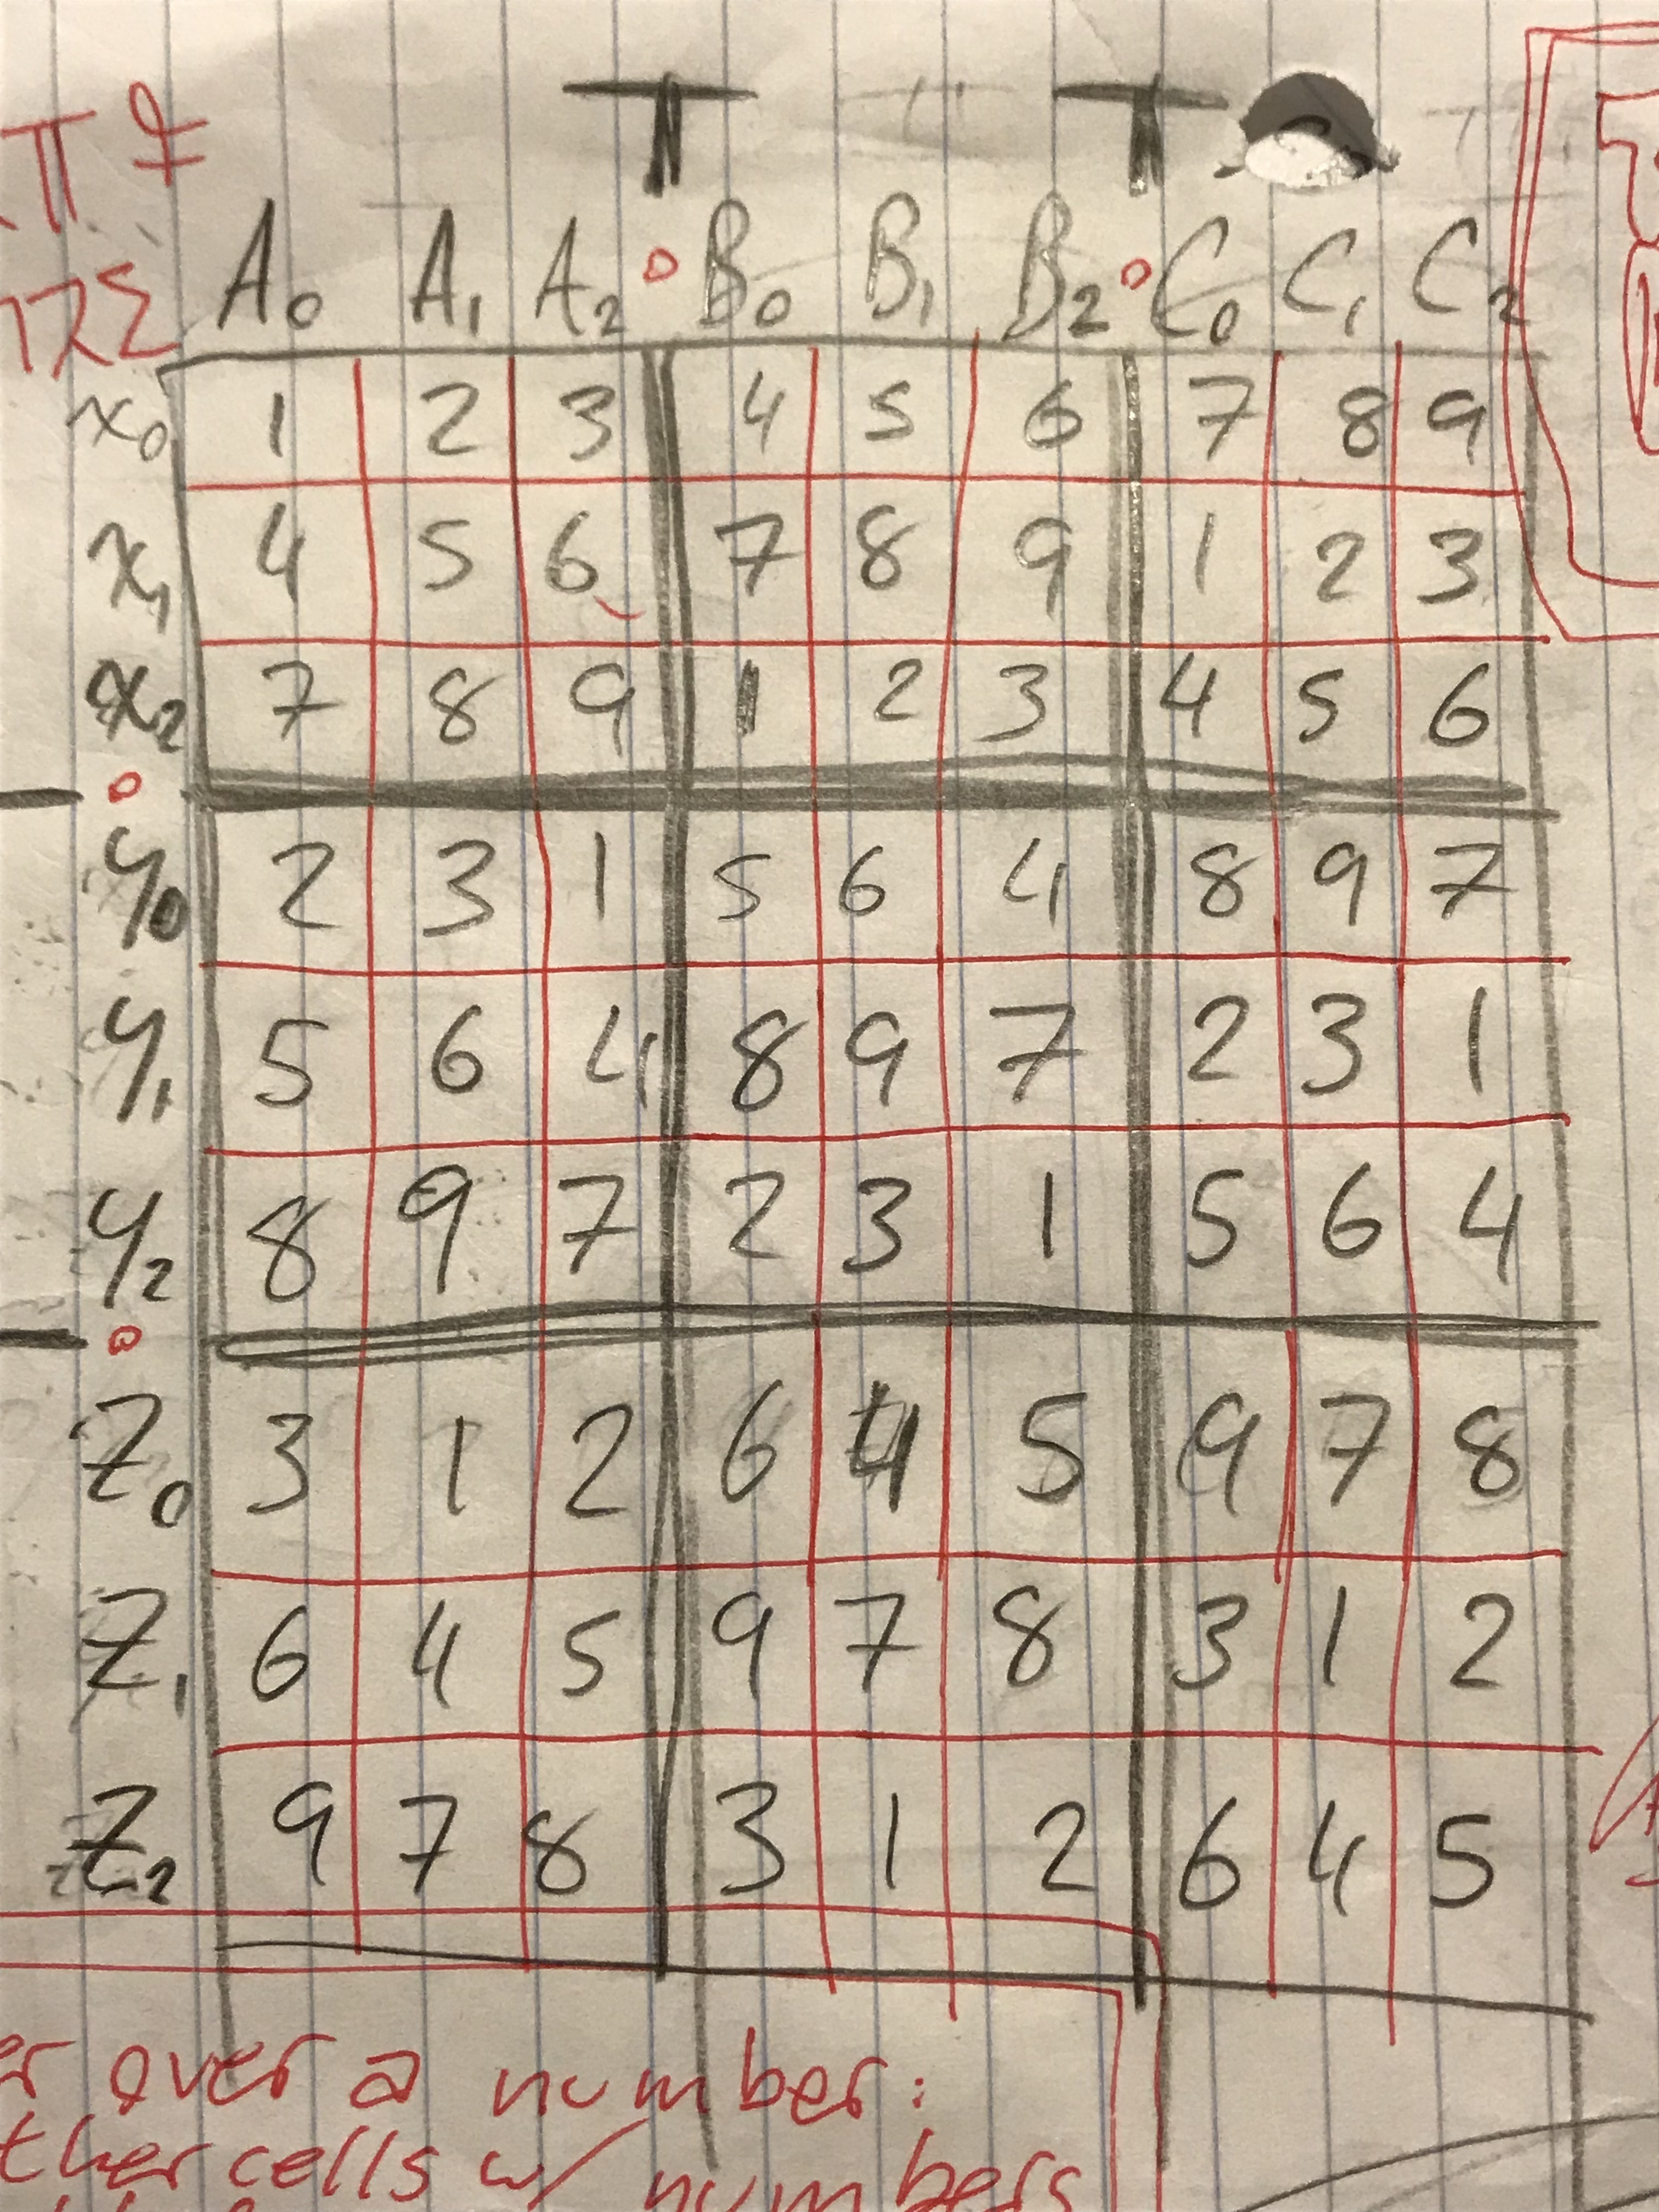 A₀ A₁ A₂ B₀ B₁ B₂ C₀ C₁ C₂
x₀ 1 2 3 4 5 6 7 8 9
x₁ 4 5 6 7 8 9 1 2 3
x₂ 7 8 9 1 2 3 4 5 6
y₀ 2 3 1 5 6 4 8 9 7
y₁ 5 6 4 8 9 7 2 3 1
y₂ 8 9 7 2 3 1 5 6 4
Z₀ 3 1 2 6 4 5 9 7 8
Z₁ 6 4 5 9 7 8 3 1 2
Z₂ 9 7 8 3 1 2 6 4 5
er over a number:
ther cells w/ numbers